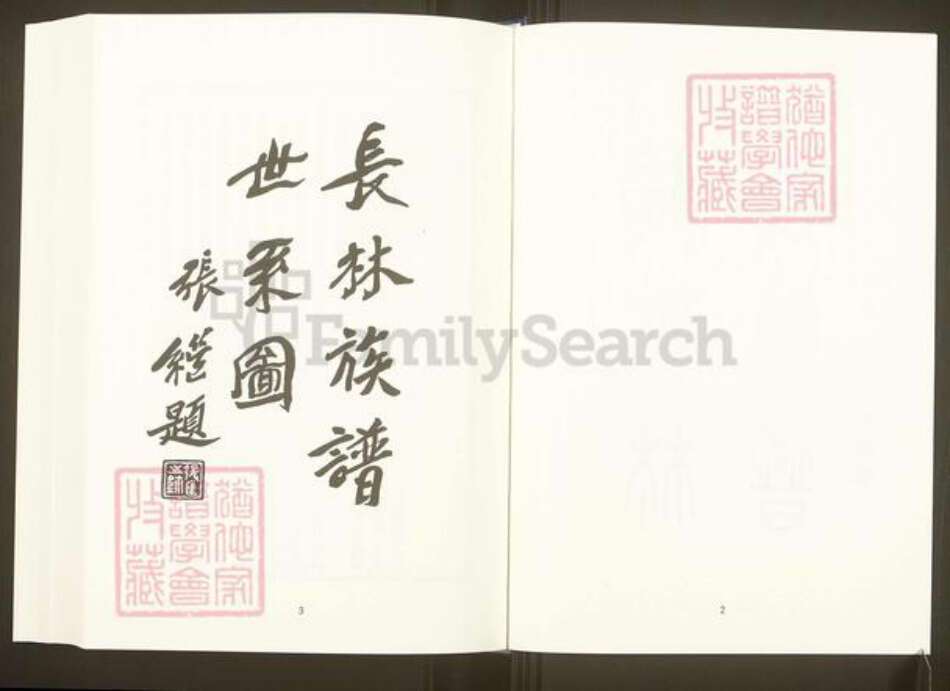 長林族譜
世系圖
張繼題
猶他家
譜學會
收藏
猶他家
譜學會
收藏
3
2
FamilySearch